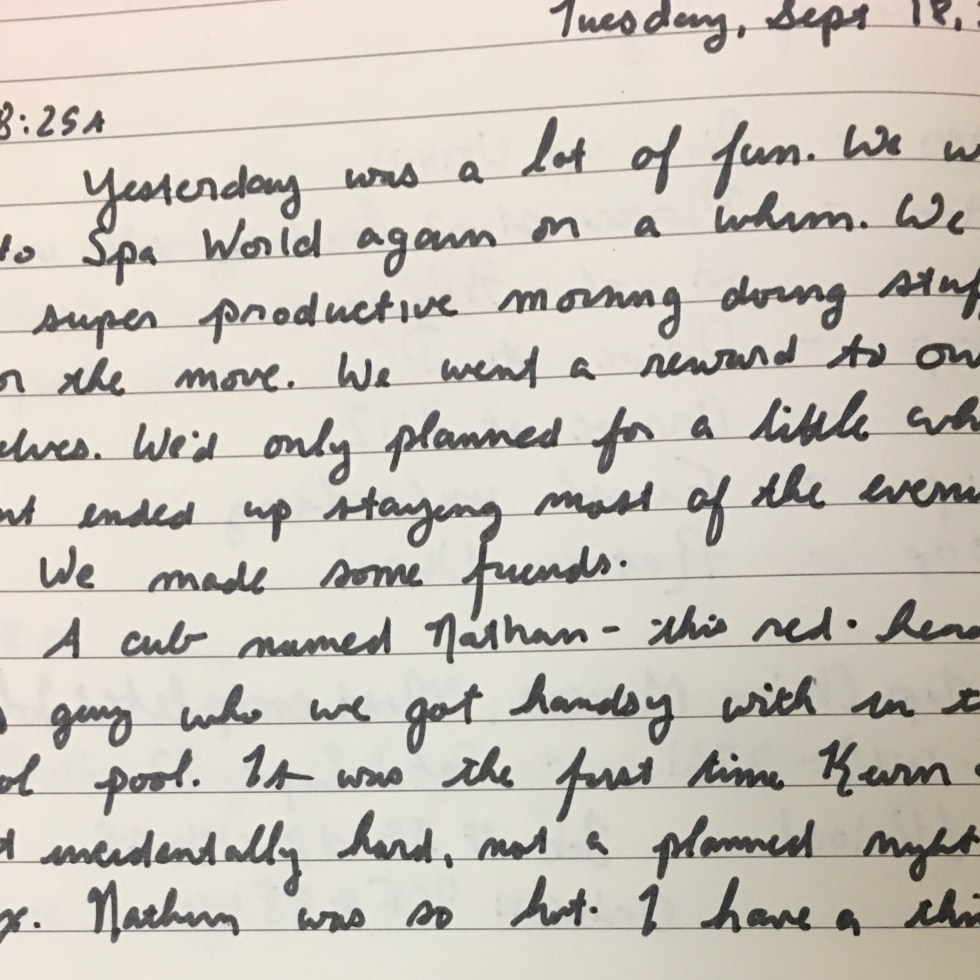 Tuesday, Sept 18,
8:25A
Yesterday was a lot of fun. We w
to Spa World again on a whim. We
super productive morning doing stuf
or the move. We went a reward to our
elves. We'd only planned for a little wh
ut ended up staying most of the eveni
We made some friends.
A cub named Nathan - this red-head
guy who we got handsy with in t
ol pool. It was the first time Kevin
d incidentally hard, not a planned night
x. Nathan was so hot. I have a thi